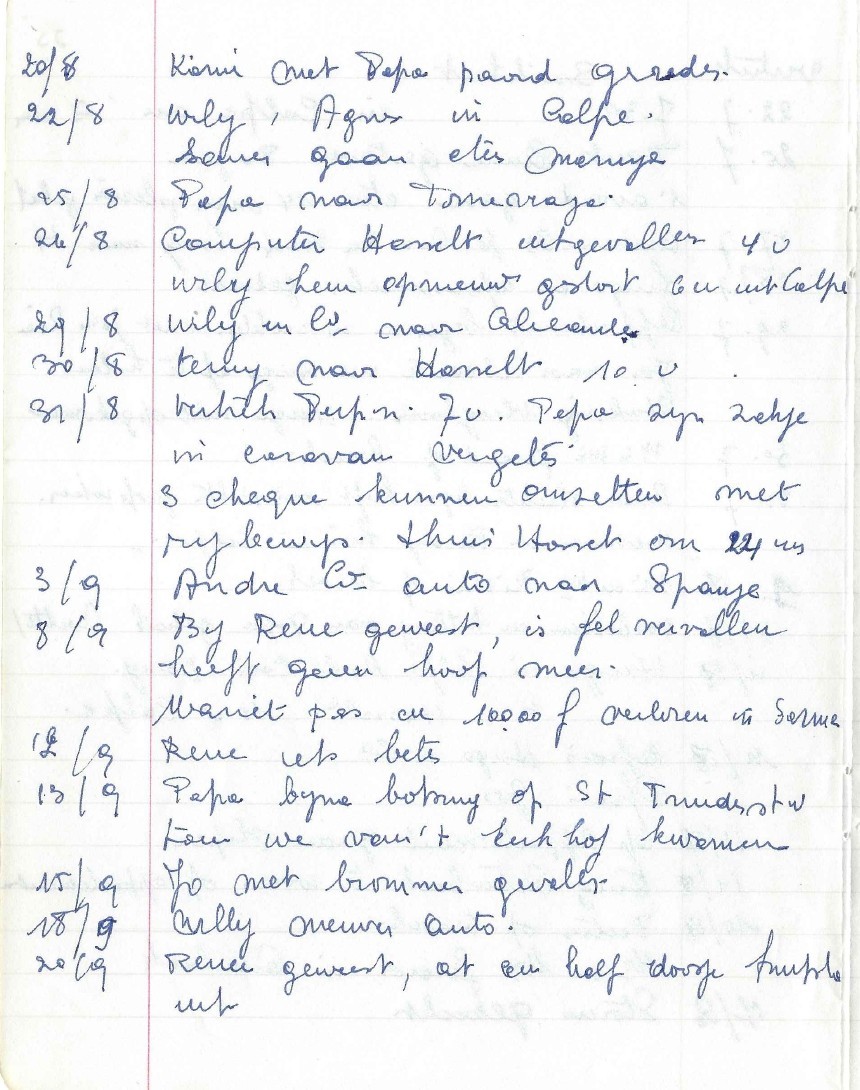 20/8 Kiomi met Papa paard gereden.
22/8 Willy, Agnes in Calpe.
Samen gaan eten Moraira
25/8 Papa naar Torrevieja.
26/8 Computer Hasselt uitgevallen 4 u
Willy hem opnieuw gestort 6 u uit Calpe
29/8 Willy en Co naar Alicante.
30/8 terug naar Hasselt 10 u.
31/8 Vertrek Perpi. 7 u. Papa zijn zakje
in caravan vergeten
3 cheque kunnen omzetten met
rijbewijs. thuis Hasselt om 22 u
3/9 Andre Co auto naar Spanje
8/9 Bij Rene geweest, is fel vervallen
heeft geen hoop meer.
pas en 10.000 f verloren in Sarma
12/9 Rene iets beter
13/9 Papa bijna botsing op St Truidersstw
toen we van 't kerkhof kwamen
15/9 Jo met brommer gevallen
18/9 Willy nieuwe auto.
20/9 Rene geweest, at een half doosje
uit